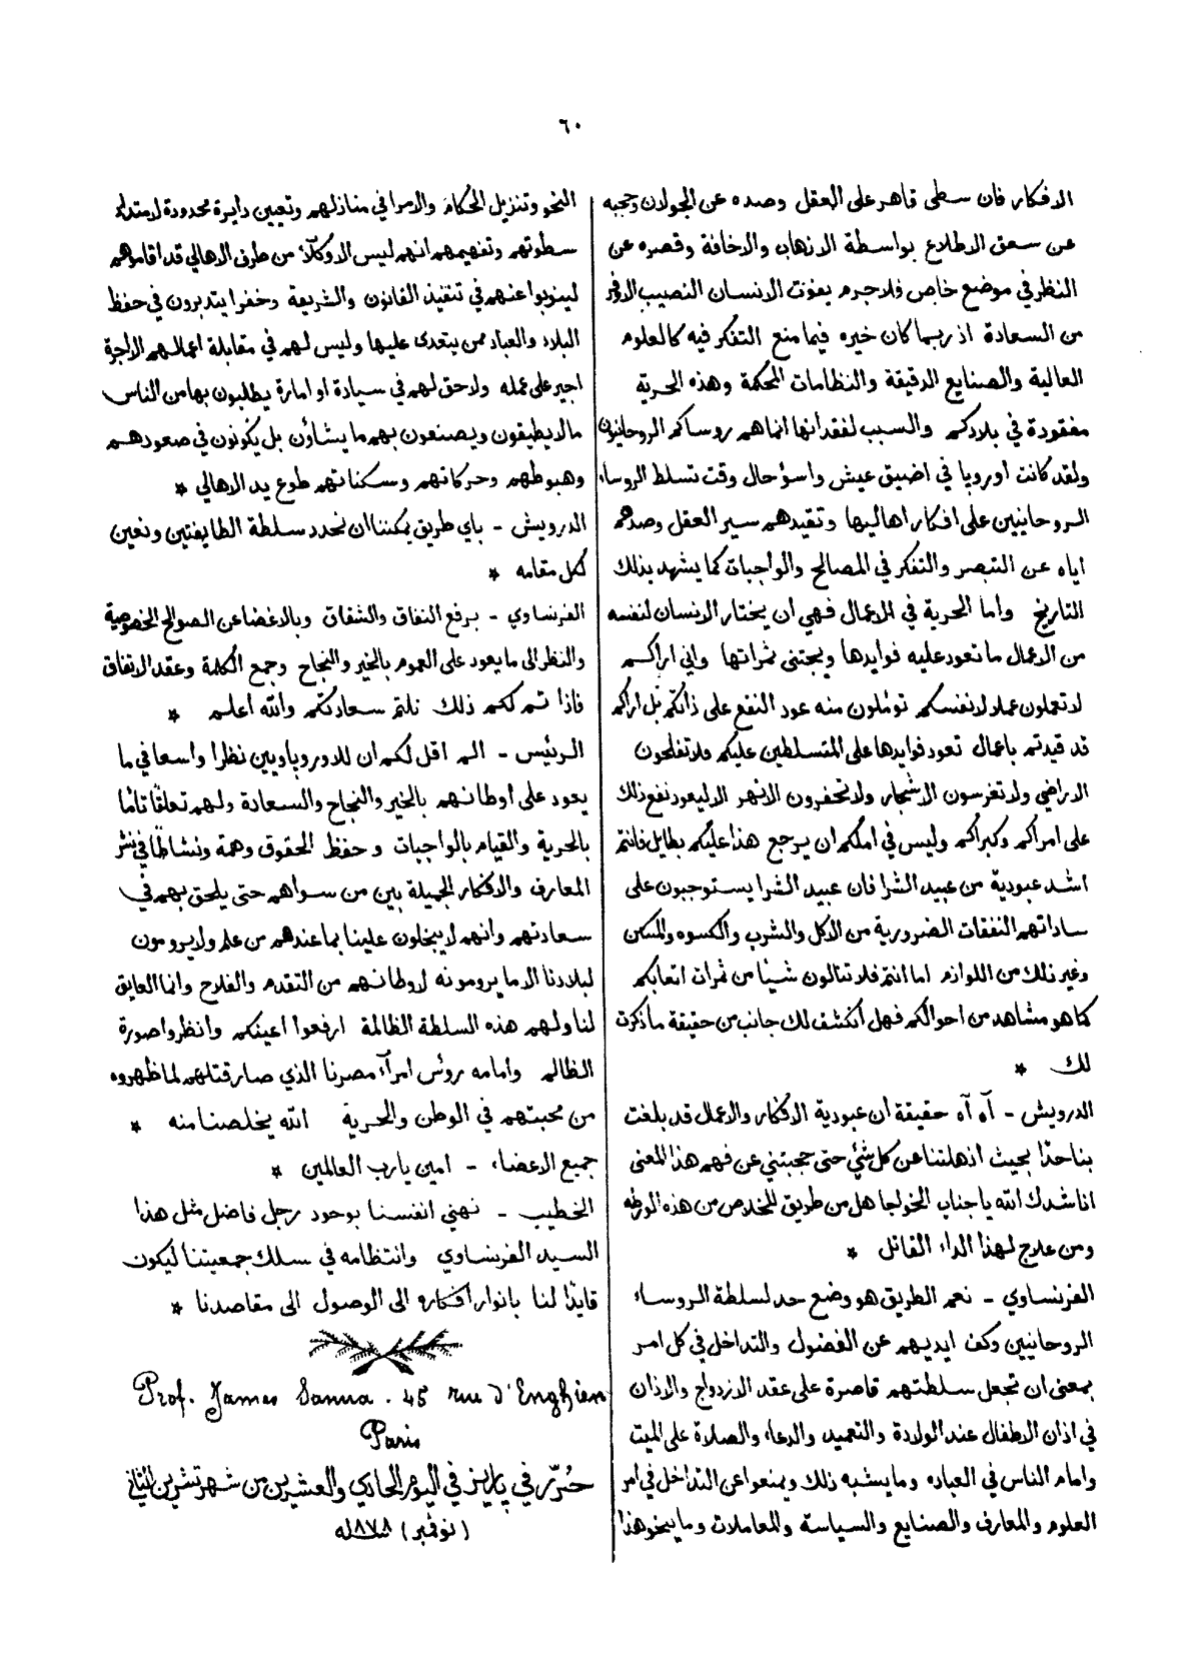 ٦٠
الافكار فان سطى قاهر على العقل وصده عن الجولان وحجبه
عن سعق الاطلاع بواسطة الارهاب والاخافة وقصره عن
النظر في موضع خاص فلاجرم يفوت الانسان النصيب الاوفر
من السعادة اذ ربما كان خيره فيما منع التفكر فيه كالعلوم
العالية والصنايع الدقيقة والنظامات المحكمة وهذه الحرية
مفقودة في بلادكم والسبب لفقدانها انماهم روساكم الروحانيون
ولقد كانت اوروبا في اضيق عيش واسوٴ حال وقت تسلط الروساء
الروحانيين على افكار اهاليها وتقيدهم سير العقل وصدهم
اياه عن التبصر والتفكر في المصالح والواجبات كما يشهد بذلك
التاريخ واما الحرية في الاعمال فهي ان يختار الانسان لنفسه
من الاعمال ما تعود عليه فوايدها ويجتنى ثمراتها واني اراكم
لا تعملون عملا لانفسكم توٴملون منه عود النفع على ذاتكم بل اراكم
قد قيدتم باعمال تعود فوايدها على المتسلطين عليكم فلا تفلحون
الاراضي ولا تغرسون الاشجار ولا تحفرون الانهر الا ليعود نفع ذلك
على امراكم وكبراكم وليس في املكم ان يرجع هذا عليكم بطايل فانتم
اشد عبودية من عبيد الشرا فان عبيد الشرا يستوجبون على
ساداتهم النفقات الضرورية من الاكل والشرب والكسوه والمسكن
وغير ذلك من اللوازم اما انتم فلا تنالون شيئا من ثمرات اتعابكم
كما هو مشاهد من احوالكم فهل انكشف لك جانب من حقيقة ما ذكرت
لك *
الدرويش - آه آه حقيقة ان عبودية الافكار والاعمال قد بلغت
بنا حدًا بحيث اذهلتنا عن كل شيٴ حتى حجبتني عن فهم هذا المعنى
اناشدك الله يا جناب الخواجا هل من طريق للخلاص من هذه الورطه
ومن علاج لهذا الداء القاتل *
الفرنساوي - نعم الطريق هو وضع حد لسلطة الروساء
الروحانيين وكف ايديهم عن الفضول والتداخل في كل امر
بمعنى ان تجعل سلطتهم قاصرة على عقد الازدواج والاذان
في اذان الاطفال عند الولادة والتعميد والدعاء والصلاة على الميت
وامام الناس في العباده وما يشبه ذلك ويمنعوا عن التداخل في امر
العلوم والمعارف والصنايع والسياسة والمعاملات وما ينحو هذا
النحو وتنزيل الحكام والامرا في منازلهم وتعيين دايرة محدودة لامتداد
سطوتهم وتفهيمهم انهم ليس الا وكلآ من طرف الاهالي قد اقاموهم
لينوبوا عنهم في تنفيذ القانون والشريعة وخفرا يتدبرون في حفظ
البلاد والعباد ممن يتعدى عليها وليس لهم في مقابلة اعمالهم الا اجرة
اجير على عمله ولا حق لهم في سيادة او امارة يطلبون بها من الناس
ما لا يطيقون ويصنعون بهم ما يشاؤن بل يكونون في صعودهم
وهبوطهم وحركاتهم وسكناتهم طوع يد الاهالي *
الدرويش - باي طريق يمكننا ان نحدد سلطة الطايفتين ونعين
لكل مقامه *
الفرنساوي - برفع النفاق والشقاق وبالاغضا عن الصوالح الخصوصية
والنظر الى ما يعود على العموم بالخير والنجاح وجمع الكلمة وعقد الاتفاق
فاذا تم لكم ذلك نلتم سعادتكم والله اعلم *
الرئيس - الم اقل لكم ان للاوروباويين نظرا واسعا في ما
يعود على اوطانهم بالخير والنجاح والسعادة ولهم تعلقًا تامًا
بالحرية والقيام بالواجبات وحفظ الحقوق وهمة ونشاطًا في نشر
المعارف والافكار الجميلة بين من سواهم حتى يلحق بهم في
سعادتهم وانهم لا يبخلون علينا بما عندهم من علم ولا يرومون
لبلادنا الا ما يرومونه لاوطانهم من التقدم والفلاح وانما العايق
لنا ولهم هذه السلطة الظالمة ارفعوا اعينكم وانظروا صورة
الظالم وامامه روٴس امرآء مصرنا الذي صار قتلهم لما ظهروه
من محبتهم في الوطن والحرية الله يخلصنا منه *
جميع الاعضاء - امين يا رب العالمين *
الخطيب - نهني انفسنا بوجود رجل فاضل مثل هذا
السيد الفرنساوي وانتظامه في سلك جمعيتنا ليكون
قايدًا لنا بانوار افكاره الى الوصول الى مقاصدنا *
Prof. James Sanua . 45 rue d'Enghien
Paris
حُرّر في پاريز في اليوم الحادي والعشرين من شهر تشرين الثاني
(نوڤمبر) سنة ١٨٧٨